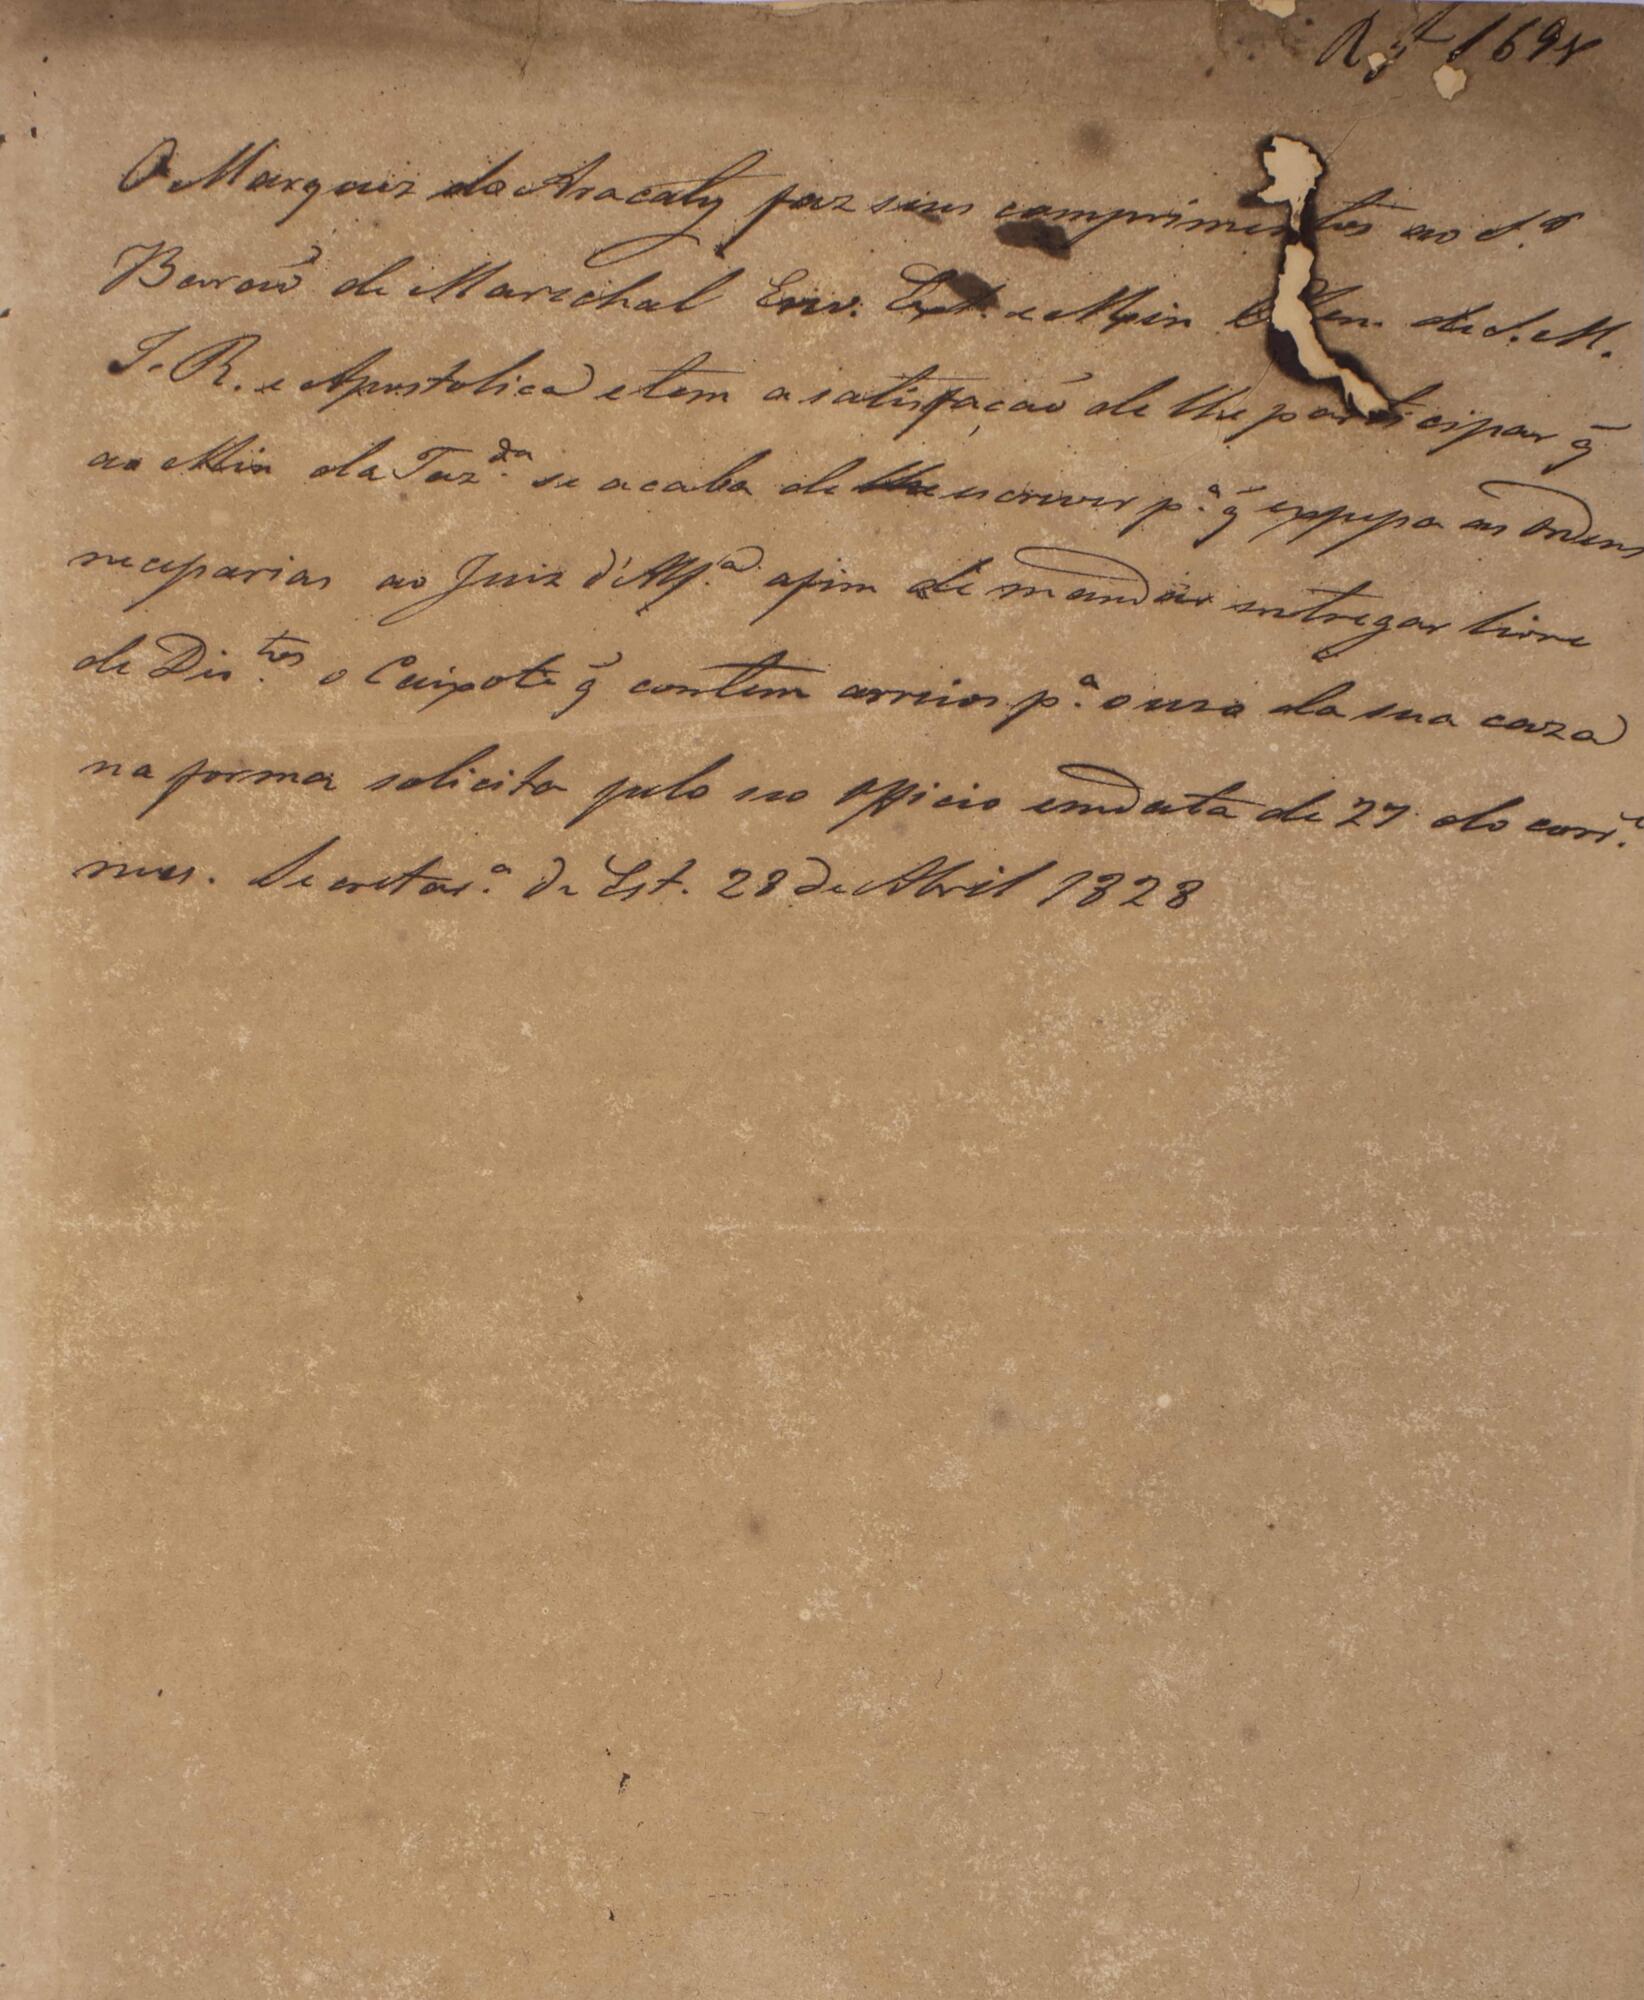 R.g.t 169
O Marquez de Aracaty faz seus comprimentos ao S.r
Baraõ de Mareschal Env. Ext. e Min Plen. de S. M.
I. R. e Apostolica e tem a satisfaçaõ de lhe participar q̃
ao Min da Faz.da se acaba de escrever p.a q̃ expessa as ordens
necessarias ao Juiz d'Alf.a afim de mandar entregar livre
de Dir.tos o Caixote q̃ contem arreios p.a o uso da sua caza
na forma solicita pelo seo officio em data de 27 do corr.e
mes. Secretar.a de Est. 28 de Abril 1828